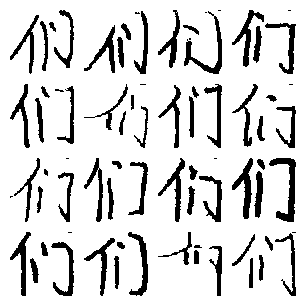 们们们们
们们们们
们们们们
们们们们